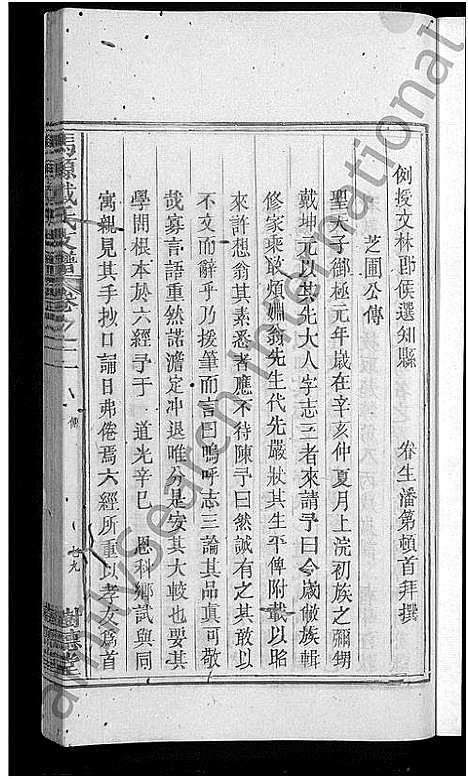 例授文林郎候選知縣 眷生潘第頓首拜撰
芝圃公傳
聖天子御極元年歲在辛亥仲夏月上浣初族之彌甥
戴坤元以其先大人字志三者來請予曰今歲敝族輯
修家乘敢煩姻翁先生代先嚴狀其生平俾附載以昭
來許想翁其素悉者應不待陳予曰然誠有之其敢以
不文而辭乎乃援筆而言曰嗚呼志三論其品真可敬
哉寡言語重然諾澹定冲退唯分是安其大較也要其
學問根本於六經予于 道光辛巳 恩科鄉試與同
寓親見其手抄口誦日弗倦焉六經所重以孝友為首
戴氏支譜 卷之二 傳 七九 樹德堂
amilySearch International